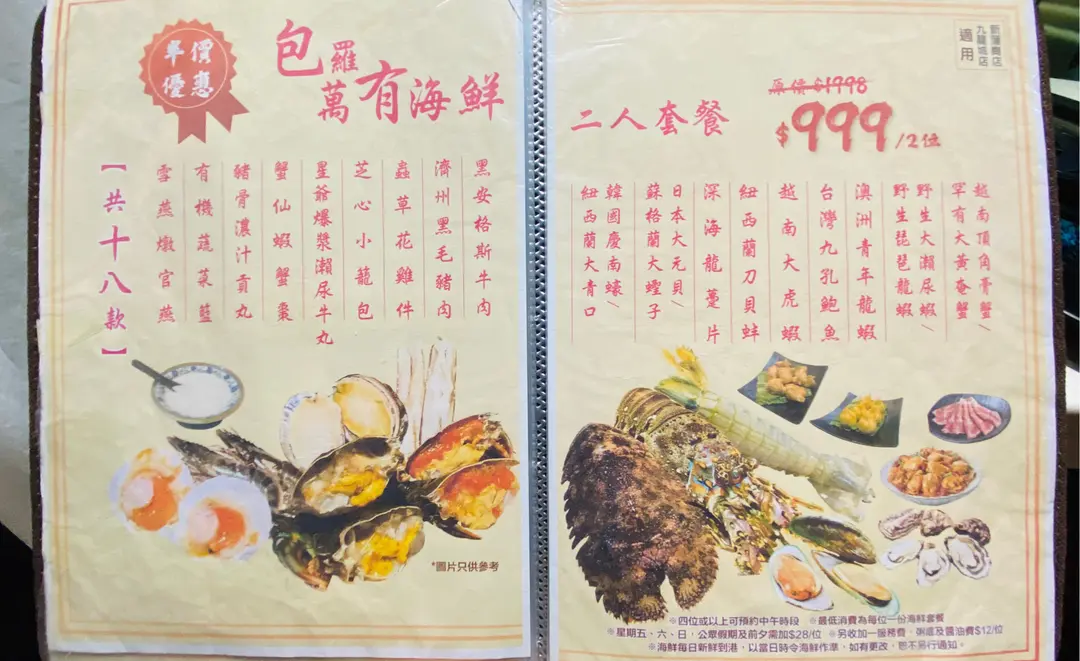 單價
優惠
包羅
萬有海鮮
【共十八款】
黑安格斯牛肉
濟州黑毛豬肉
蟲草花雞件
芝心小籠包
星爺爆漿瀨尿牛丸
蟹仙蝦蟹棗
豬骨濃汁貢丸
有機蔬菜籃
雪燕燉官燕
*圖片只供參考
新蒲崗店
九龍城店
適用
二人套餐
原價$1998
$999/2位
越南頂角膏蟹/
罕有大黃奄蟹
野生大瀨尿蝦/
野生琵琶龍蝦
澳洲青年龍蝦
台灣九孔鮑魚
越南大虎蝦
紐西蘭刀貝蚌
深海龍躉片
日本大元貝/
蘇格蘭大蟶子
韓國慶南蠔/
紐西蘭大青口
※四位或以上可預約中午時段 ※最低消費為每位一份海鮮套餐
※星期五、六、日，公眾假期及前夕需加$28/位 ※另收加一服務費，喇滷及醬油費$12/位
※海鮮每日新鮮到港，以當日時令海鮮作準，如有更改，恕不另行通知。